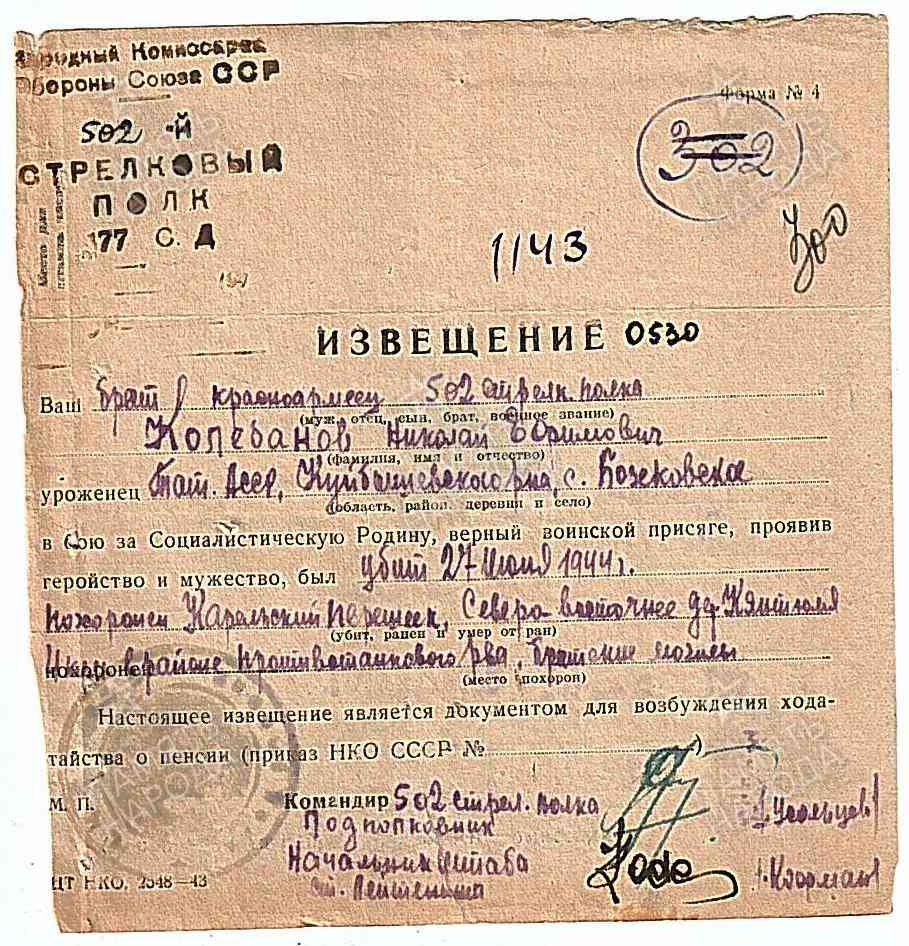 Народный Комиссариат
Обороны Союза ССР
Форма № 4
502-й
302
СТРЕЛКОВЫЙ
ПОЛК
177 С. Д
300
1143
ИЗВЕЩЕНИЕ 0530
Ваш брат красноармеец 502 стрелк. полка
(муж, отец, сын, брат, военное звание)
Колебанов Николай Ефимович
(фамилия, имя и отчество)
уроженец Тат. Асср, Куйбышевского р-на, с. Бозековское
(область, район, деревня и село)
в бою за Социалистическую Родину, верный воинской присяге, проявив
геройство и мужество, был убит 27 июня 1944 г.
похоронен Карельский перешеек, Северо-восточнее
(убит, ранен и умер от ран)
похоронен в районе противотанкового рва, братские могилы
(место похорон)
Настоящее извещение является документом для возбуждения хода-
тайства о пенсии (приказ НКО СССР № )
М. П. Командир 502 стрел. полка
Подполковник (Усольцев)
Начальник штаба
ст. Лейтенант
ЦТ НКО, 2548—43